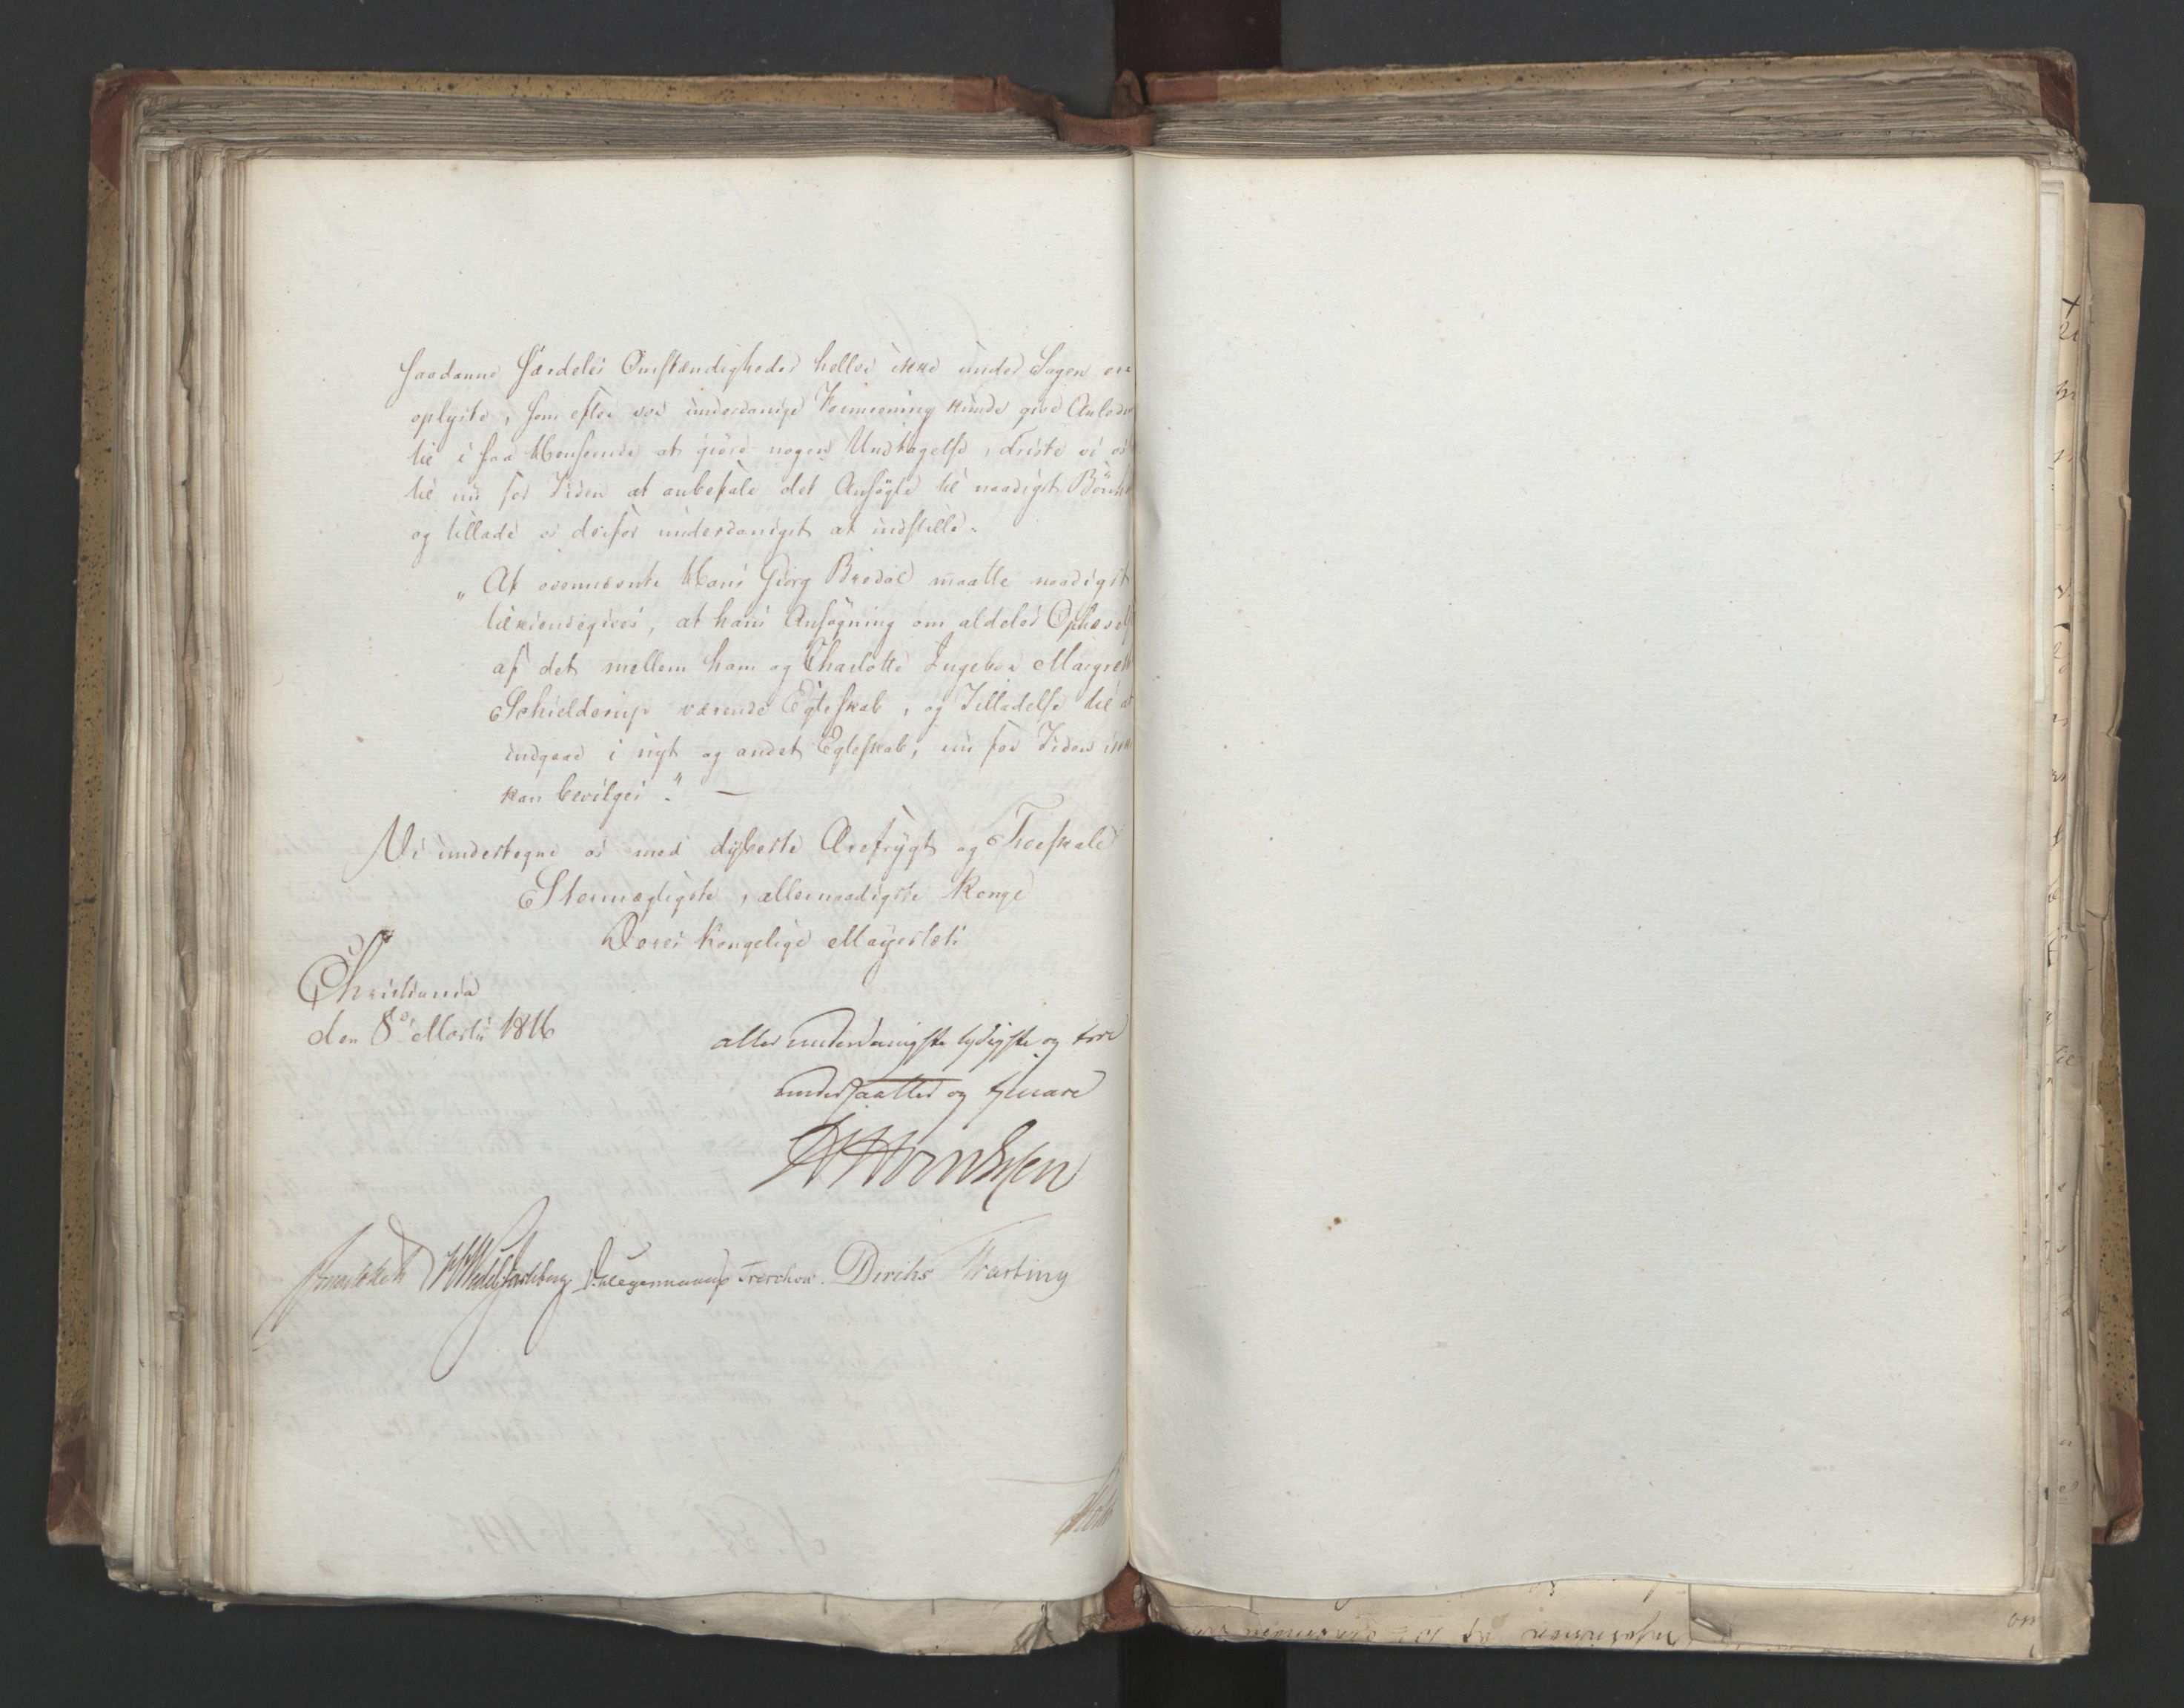 saadanne særdeles Omstændigheder heller ikke under Sagen ere
oplyste, som efter vor underdanige Formening kunde give Anledn
til i saa Henseende at giøre nogen Undtagelse, driste vi os
til nu for Tiden at anbefale det Ansøgte til naadigst Bønh
og tillade os derfor underdanigst at indstille:
"At ovennævnte Hans Giørg Bredal maatte naadigst
tilkiendegives, at hans Ansøgning om aldeles Ophævels
af det mellem ham og Charlotte Ingebor Margreth
Schielderup værende Egteskab, og Tilladelse til at
indgaae i nyt og andet Egteskab, nu for Tiden ikke
kan bevilges." —
Vi undertegne os med dybeste Ærefrygt og Troeskab
Stormægtigste, allernaadigste Konge
Deres Kongelige Mayestæts
Christiania
den 8de Martii 1816
allerunderdanigste lydigste og troe
undersaatter og tjenere
Fr. Wedel Jarlsberg Treschow. Diriks Hartung